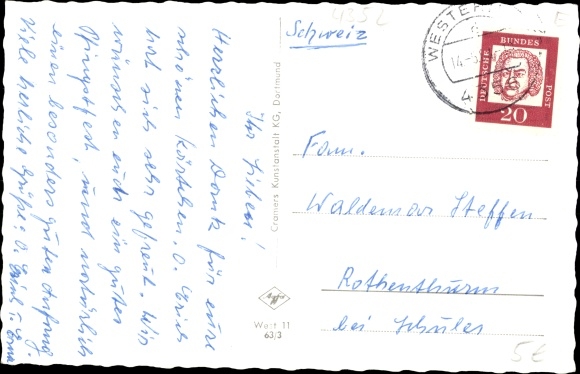 Ihr Lieben!
Herzlichen Dank für eure
schönen Kärtchen. O. Erich
hat sich sehr gefreut. Wir
wünschen euch ein gutes
Pfingstfest, und natürlich
einen besonders guten Anfang.
Viele herzliche Grüße: O. Erich u. Erna
Cramers Kunstanstalt KG, Dortmund
West 11
63/3
4352
Schweiz
WESTER
14.5
DEUTSCHE
BUNDES
POST
20
Fam.
Waldemar Steffen
Rothenthurm
bei Schuler
5€